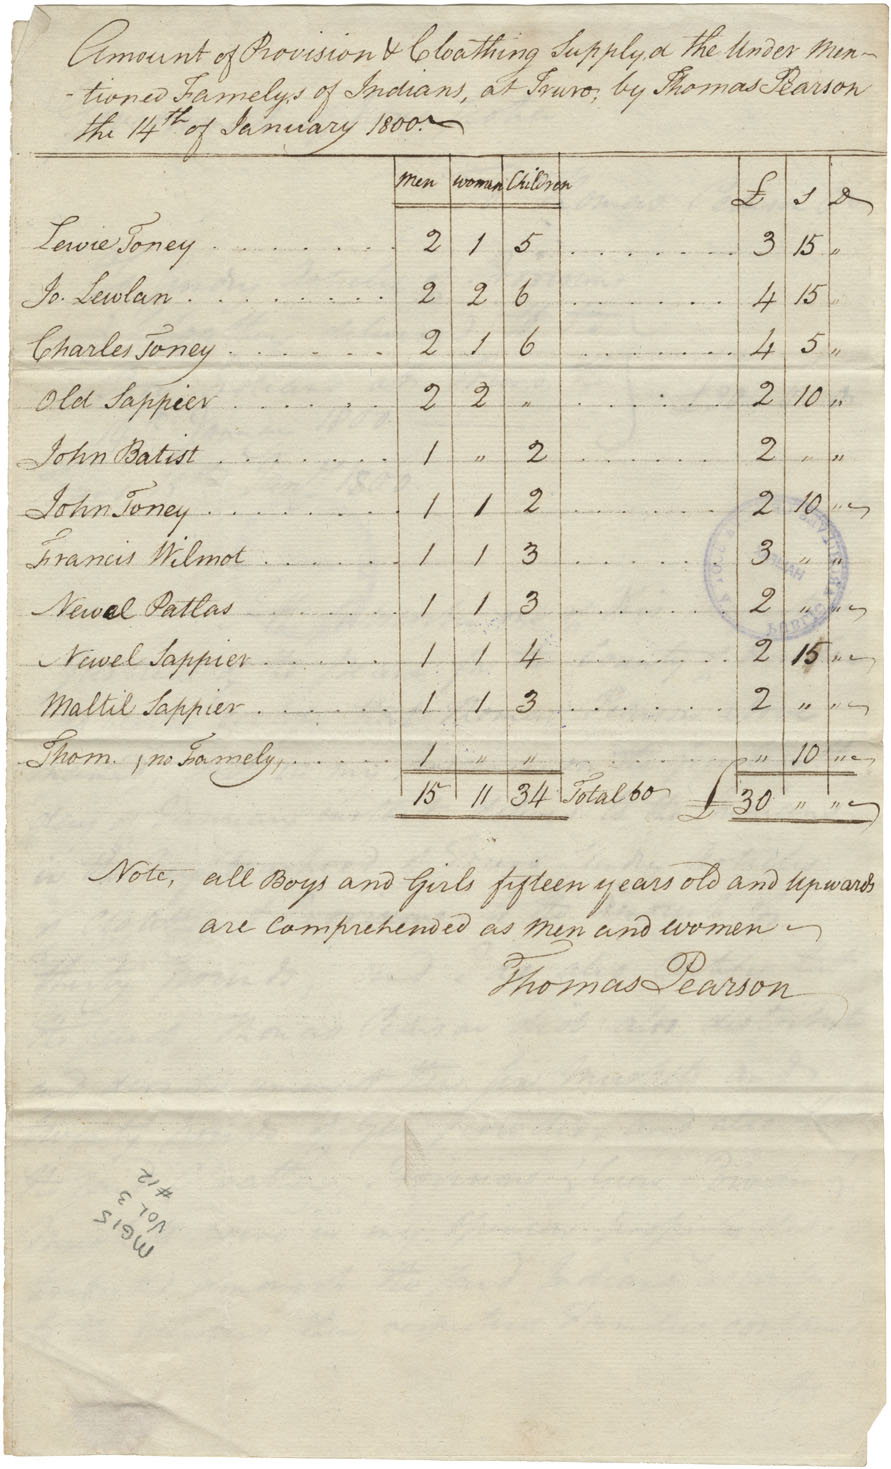 Amount of Provision & Cloathing Supply,d the Under Men-
-tioned Famely,s of Indians, at Truro, by Thomas Pearson
the 14th of January 1800.
Men Women Children £ S D
Lewie Toney 2 1 5 3 15 "
Jo. Lewlan 2 2 6 4 15 "
Charles Toney 2 1 6 4 5 "
Old Sappier 2 2 " 2 10 "
John Batist 1 " 2 2 " "
John Toney 1 1 2 2 10 "
Francis Wilmot 1 1 3 3 " "
Newel Patlas 1 1 3 2 " "
Newel Sappier 1 1 4 2 15 "
Maltil Sappier 1 1 3 2 " "
Thom. , no Famely, 1 " " " 10 "
15 11 34 Total 60 £ 30 " "
Note, all Boys and Girls fifteen years old and Upwards
are Comprehended as Men and Women
Thomas Pearson
MG15
VOL 3
#12